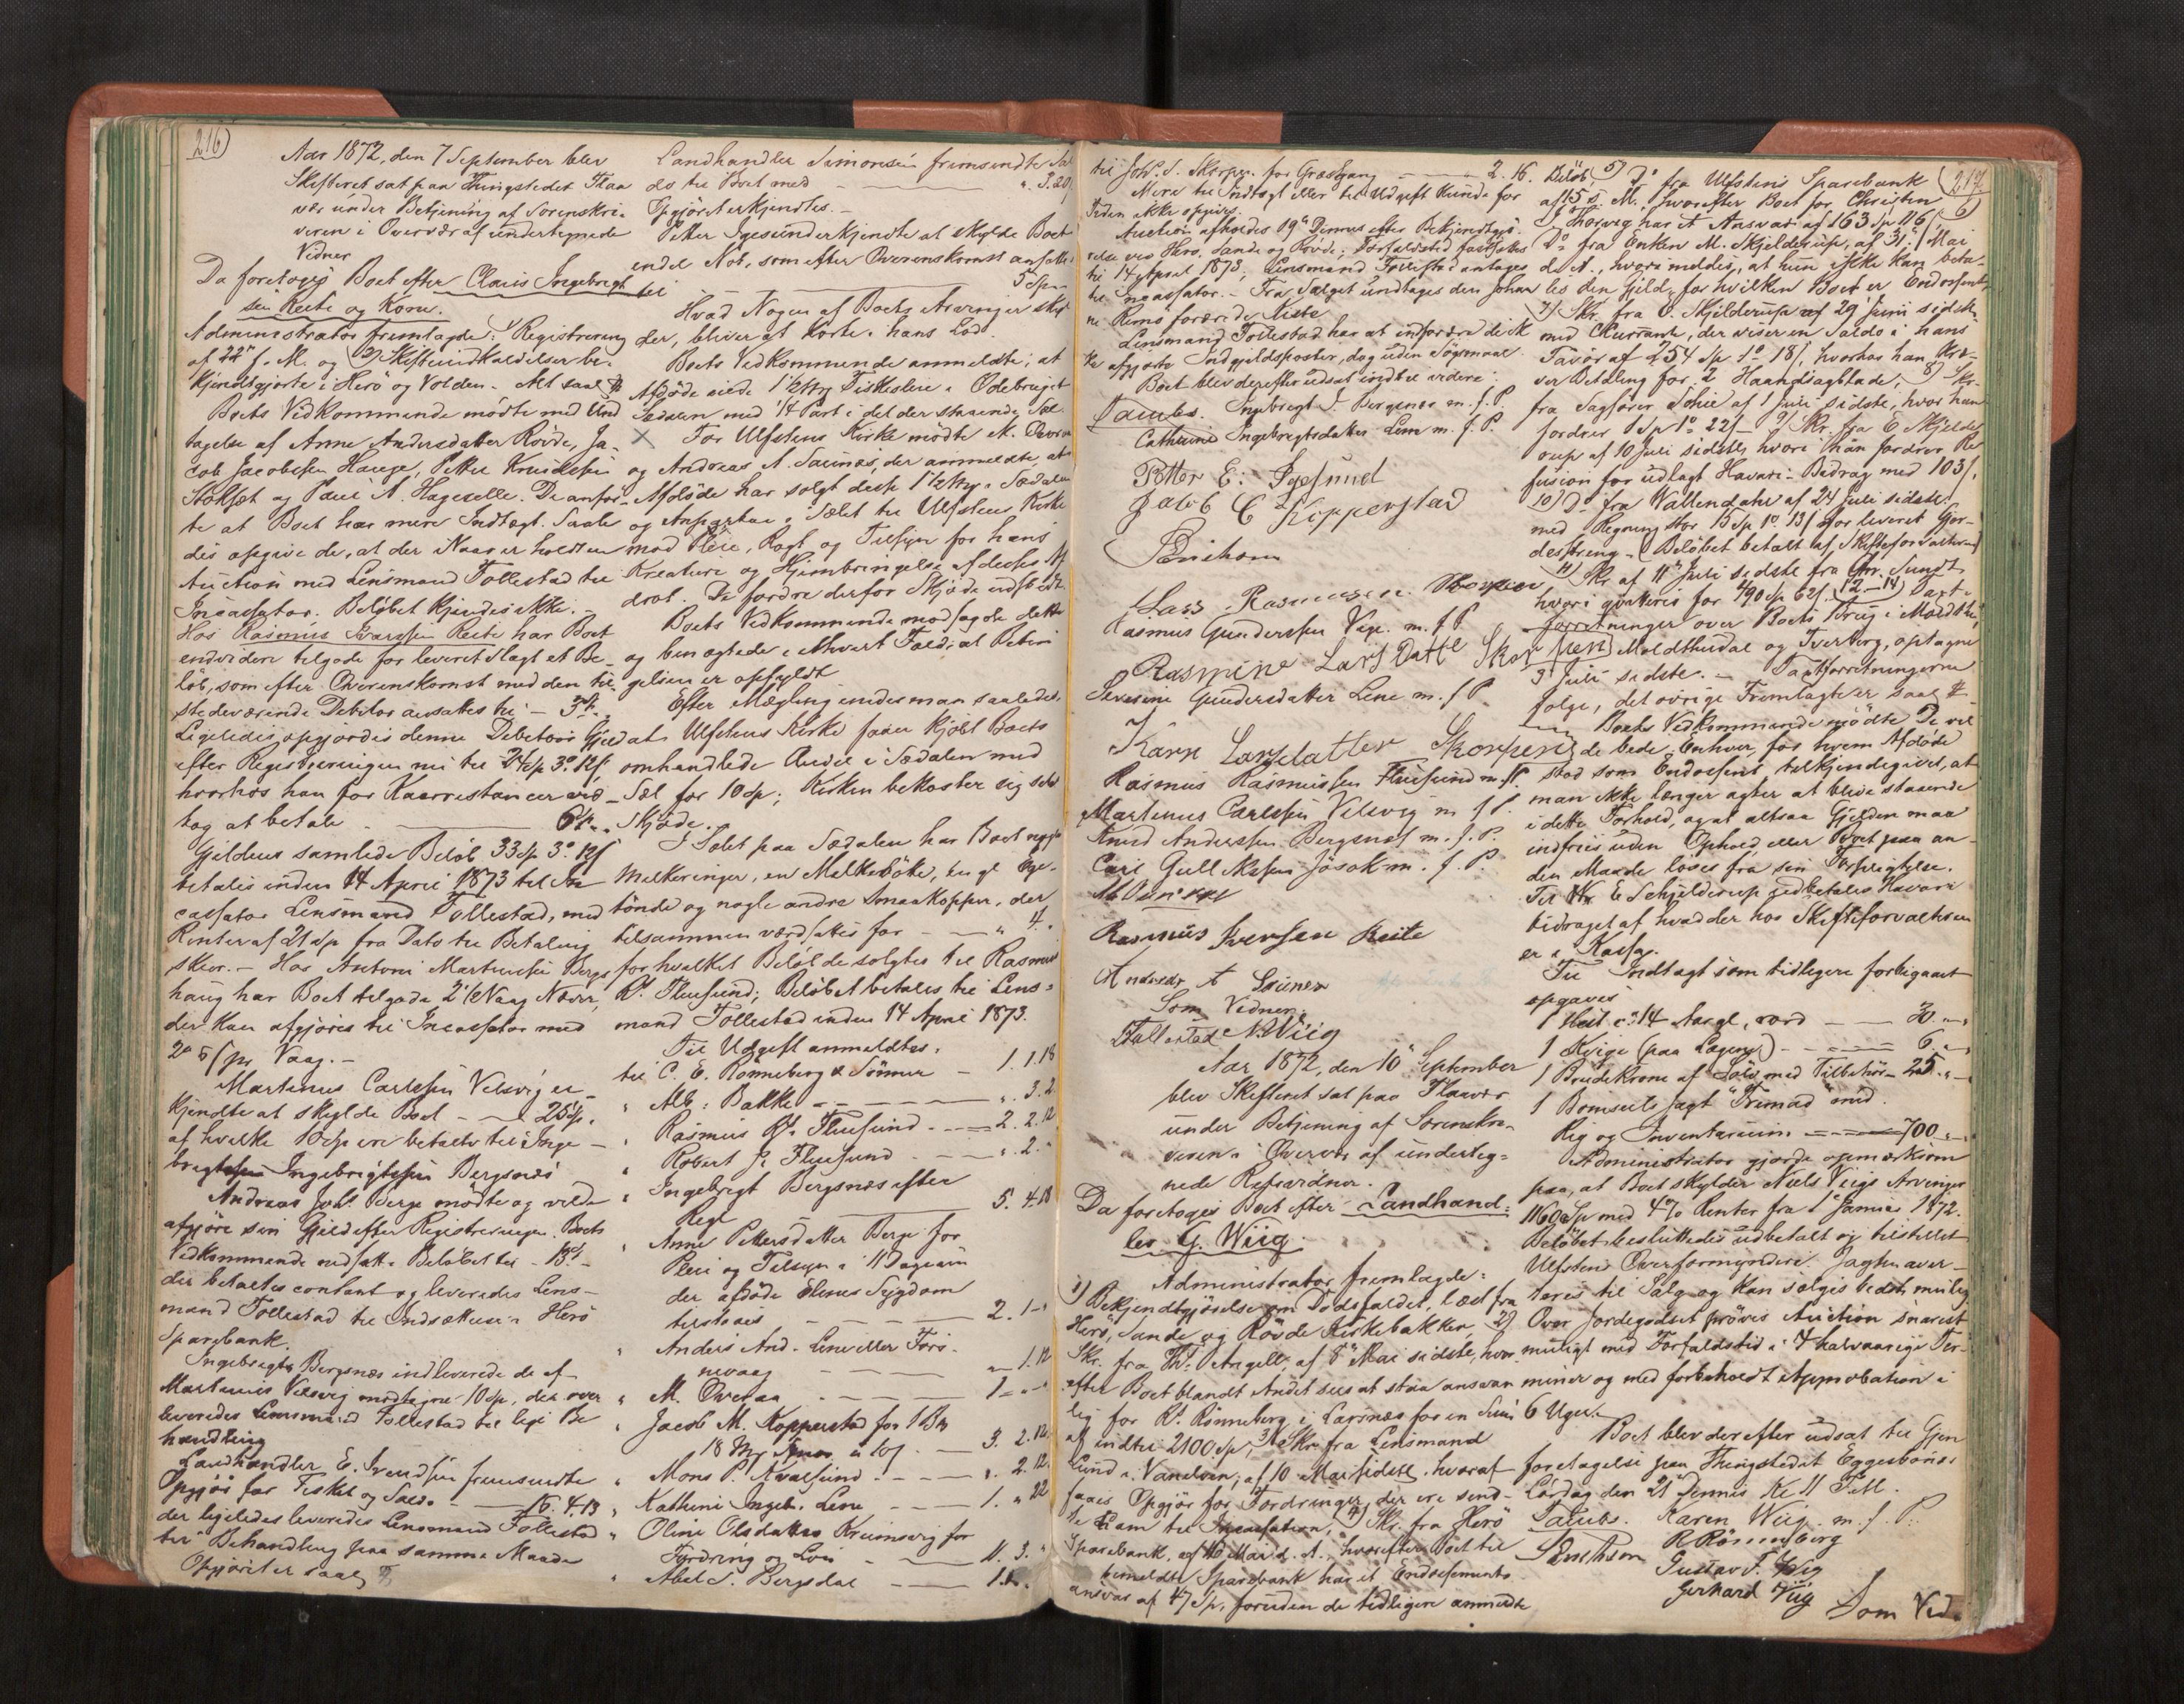 216)
Aar 1872, den 7 September blev
Skifteret sat paa Thingstedet Flaa
vær under Betjening af Sorenskri-
veren i Overvær af undertegnede
Vidner
Da foretoges Boet efter Claus Ingebrigt
sen Reite og Kone.
Administrator fremlagde: 1) Registrering
af 22de f. M. og 2) Skifteindkaldelser be-
kjendtgjorte i Herö og Volden. Alt saal.
Boets Vedkommende mödte med Und
tagelse af Anne Andersdatter Röide, Ja-
cob Jacobsen Hauge, Petter Knudssen
Stokset og Paul A. Hageselle. De anför-
te at Boet har mere Indtægt. Saale
des opgive de, at der i Vaar er holdt en
Auction med Lensmand Follestad til
Incassator. Beløbet kjendes ikke. -
Hos Rasmus Ivarssen Reite har Boet
endvidere tilgode for leveret Slagt et Be-
löb, som efter Overenskomst med den til-
stedeværende Debitor ansattes til - 3
Ligeledes opgjordes denne Debitors Gjeld
efter Registreringen nu til 24 Sp 3 12
hvorhos han for
tog at betale 6
Gjeldens samlede Belöb 33 Sp 3 12
betales inden 14 April 1873 til In
cassator Lensmand Follestad, med
Renter af 21 Sp fra Dato til Betaling
skeer. - Hos Antoni Martinussen Bergs
haug har Boet tilgode 2 1/2 Vaag Næver,
der kan afgjöres til Incassator med
pr Vaag. -
Martinus Carlssen Velsvig er-
kjendte at skylde Boet - 25 Sp.
af hvilke 10 Sp ere betalte til Inge-
brigt Ingebrigtssen Bergsnæs
Andreas Johs. Berge mödte og vilde
afgjöre sin Gjeld efter Registreringen. Boets
Vedkommende nedsatte Beløbet til - 13
der betaltes contant og leveredes Lens-
mand Follestad til Indsættelse i Herö
Sparebank.
Ingebrigt Bergsnæs indleverede de af
Martinus Velsvig modtagne 10 Sp, der over
leveredes Lensmand Follestad til lige Be
handling
Landhandler E. Svendsen fremsendte
Opgjör for Fiskel og Salt - 16. 4. 13
der ligeledes leveredes Lensmand Follestad
til Behandling paa samme Maade
Opgjöret er saal.
Landhandler Simonsen fremsendte Sal
do til Boet med - ". 3. 20
Opgjöret erkjendtes. -
Petter Igesund erkjendte at skylde Boet
endel Not, som efter Overenskomst ansatt
til 5 Sp -
Hvad Nogen af Boets Arvinger skyl
der, bliver at korte i hans Lod.
Boets Vedkommende anmeldte, at
Afdöde eiede 1 1/2 Mrk Fiskeleie i Odebruget
Sædalen med 1/4 Part i det der staaende Sæl.
X For Ulfstens Kirke mödte M.
og Andreas A. Saunes, der anmeldte, at
Afdöde har solgt disse 1 1/2 Mrk i Sædalen
og Anparter i Sælet til Ulfstens Kirke
mod Pleie, Rögt og Tilsyn for hans
Kreature og Hjembringelse af deres Af
drot. De fordre derfor Skjöde udstedt.
Boets Vedkommende modsagde dette
og benægtede i ethvert Fald, at Betin
gelsen er opfyldt
Efter Mægling enedes man saaledes,
at Ulfstens Kirke faaer kjöbt Boets
omhandlede Andel i Sædalen med
Sæl for 10 Sp; Kirken bekoster sig selv
Skjöde.
I Sælet paa Sædalen har Boet nogle
Melkeringer, en Melkebötte, en gl. Ege-
tönde og nogle andre Smaakopper, der
tilsammen værdsattes for - " 4 "
for hvilket Belöb de solgtes til Rasmus
Rs. Fluesund; Beløbet betales til Lens-
mand Follestad inden 14 April 1873.
Til Udgift anmeldtes:
til C. E. Rönneberg & Sönner - 1. 1. 18
" Alb. Bakke - ". 3. 2
" Rasmus Rs. Fluesund - 2. 2. 12
" Robert P. Fluesund - ". 2. "
" Ingebrigt Bergsnæs efter
Regn 5. 4. 18
" Anne Pettersdatter Berge for
Pleie og Tilsyn i 11 Dage i
den afdöde Elenes Sygdom
tilstaaes 2. 1. "
" Anders And. Lene eller Förs-
nevaag " 1. 12
" M. Overaa 1 " "
" Jacob M. Kopperstad for 1
18 Mrk Smör à 10 - 3. 2. 12.
" Mons P. Kvalsund - ". 2. 12.
" Kathrine Ingeb. Lene - 1. " 22
" Oline Olsdatter Kreimsvig for
Fordring og Lön 11. 3. "
" Abel S. Bergsdal - 1.
217
til Johs. S. Skorpen for Græsgang - 2. 16.
Mere til Indtægt eller til Udgift kunde for
Tiden ikke opgives.
Auction afholdes 19de Dennes efter Bekjendtgjö-
relse ved Herö, Sande og Rövde; Forfaldstid fastsattes
til 14 April 1873; Lensmand Follestad antages
til Incassator. - Fra Salget undtages den Johan
ne Remö forærede Kiste
Lensmand Follestad har at indfordre de ik
ke afgjorte Indgjeldsposter, dog uden Sögsmaal.
Boet blev derefter udsat indtil videre.
Daubs. Ingebrigt I. Bergsnæs m. f. P.
Cathrine Ingebrigtsdatter Lene m. f. P.
Petter E. Igesund
Jakob C Kopperstad
PErichsen
Lars Rasmusen Skorpen
Rasmus Gunderssen Vige. m. f. P
Rasmine Lars Datte Skorpen
Severine Gundersdatter Lene m. f P.
Karn Larsdatter Skorpen
Rasmus Rasmussen Fluesund m. f P
Martinus Carlssen Velsvig m f P.
Knud Anderssen Bergsnes m. f. P.
Carl Gulleksen Jösok m. f. P.
Rasmus Iversen Reite
Andreas A Saunes
Som Vidner:
Follestad N. Wiig
Aar 1872, den 10de September
blev Skifteret sat paa Flaavær
under Betjening af Sorenskri-
veren i Overvær af underteg-
nede Retsvidner.
Da foretoges Boet efter Landhand-
ler G. Wiig.
Administrator fremlagde:
1) Bekjendtgjörelse om Dödsfaldet, læst fra
Herö, Sande og Rövde Kirkebakker, 2)
Skr. fra Th. Angell, af 8de Mai sidste, hvor
efter Boet blandt Andet sees at staa ansvar
lig for Rs. Rönneberg i Larsnæs for en Sum
af indtil 2100 Sp, 3) Skr. fra Lensmand
Lund i Vanelven, af 10 Mai sidstl. hvoraf
faaes Opgjör for Fordringer, der ere send-
te ham til Incassation, 4) Skr. fra Herö
Sparebank, af 16 Mai d. A., hvorefter Boet til
bemeldte Sparebank har et Endossements-
ansvar af 47 Sp, foruden de tidligere anmeldte
Belöb, 5) Do fra Ulfstens Sparebank
af 15 s. M., hvorefter Boet for Christen
J. Thorvig har et Ansvar af 163 Sp 116; 6)
Do fra Enken M. Skjelderup, af 31 Mai
d. A., hvori meldes, at hun ikke kan beta-
les den Gjeld, for hvilken Boet er Endossent,
7) Skr. fra E. Skjelderup af 29 Juni sidstl.
med Courrante, der viser en Saldo i hans
Favör af 254 Sp 1 18, hvorhos han kræ-
ver Betaling for 2 Haandsagblade, 8) Skr.
fra Sagförer Tohie af 1 Juli sidste, hvor han
fordrer 1 Sp 1 22 - 9) Skr. fra E Skjeld-
erup af 10 Juli sidstl, hvori han fordrer Re
fusion for udlagt Havari-Bidrag med 103,
10) Do fra Wallendahl af 24 Juli sidstl.
med Regning stor 15 Sp 1 13 for leveret Gor-
desstreng - (Belöbet betalt af Skifteforvalteren)
11) Skr. af 11 Juli sidste fra Chr. Sundt
hvori qvitteres for 490 Sp 62, 12-14) Taxt-
forretninger over Boets Brug i
Moldthudal og Tverberg, optagne
3 Juli sidste. - Taxtforretningerne
fölge, det övrige Fremlagte er saal.
Boets Vedkommende mödte De vil
de bede Enhver, for hvem Afdöde
stod som Endossent, tilkjendegivet, at
man ikke længer agter at blive staaende
i dette Forhold, og at altsaa Gjelden maa
indfries uden Ophold eller Boet paa an-
den Maade löses fra sin Forpligtelse.
Til Hr. E Schjelderup udbetales Havari
bidraget af hvad der hos Skifteforvalteren
er i Kassa.
Til Indtægt som tidligere forbigaaet
opgaves
1 Hest c: 14 Aar gl., værd - 30. " "
1 Kvige (paa Lagong) - 6. " "
1 Brudekrone af Sölv med Tilbehör - 25. " "
1 Bomseils Jagt "Trimad" med
Rig og Inventarium - 700 " "
Administrator gjorde opmærksom
paa, at Boet skylder Niels Viigs Arvinger
1160 Sp med 4% Renter fra 1 Januar 1872.
Belöbet besluttedes udbetalt og tilstillet
Ulfstens Overformynderi. Jagten aver-
teres til Salg og kan sælges bedst mulig
Over Jordegodset pröves Auction snarest
muligt med Forfaldstid i 4 halvaarige Ter-
miner og med forbeholdt Approbation i
6 Uger.
Boet blev derefter udsat til Gjen
foretagelse paa Thingstedet Eggesbönes
Lördag den 21 Dennes Kl 11 F.M.
Daubs. Karen Wiig m. f. P.
PErichsen R Rönneberg
Gustav F. Wiig
Gerhard Viig Som Vid-